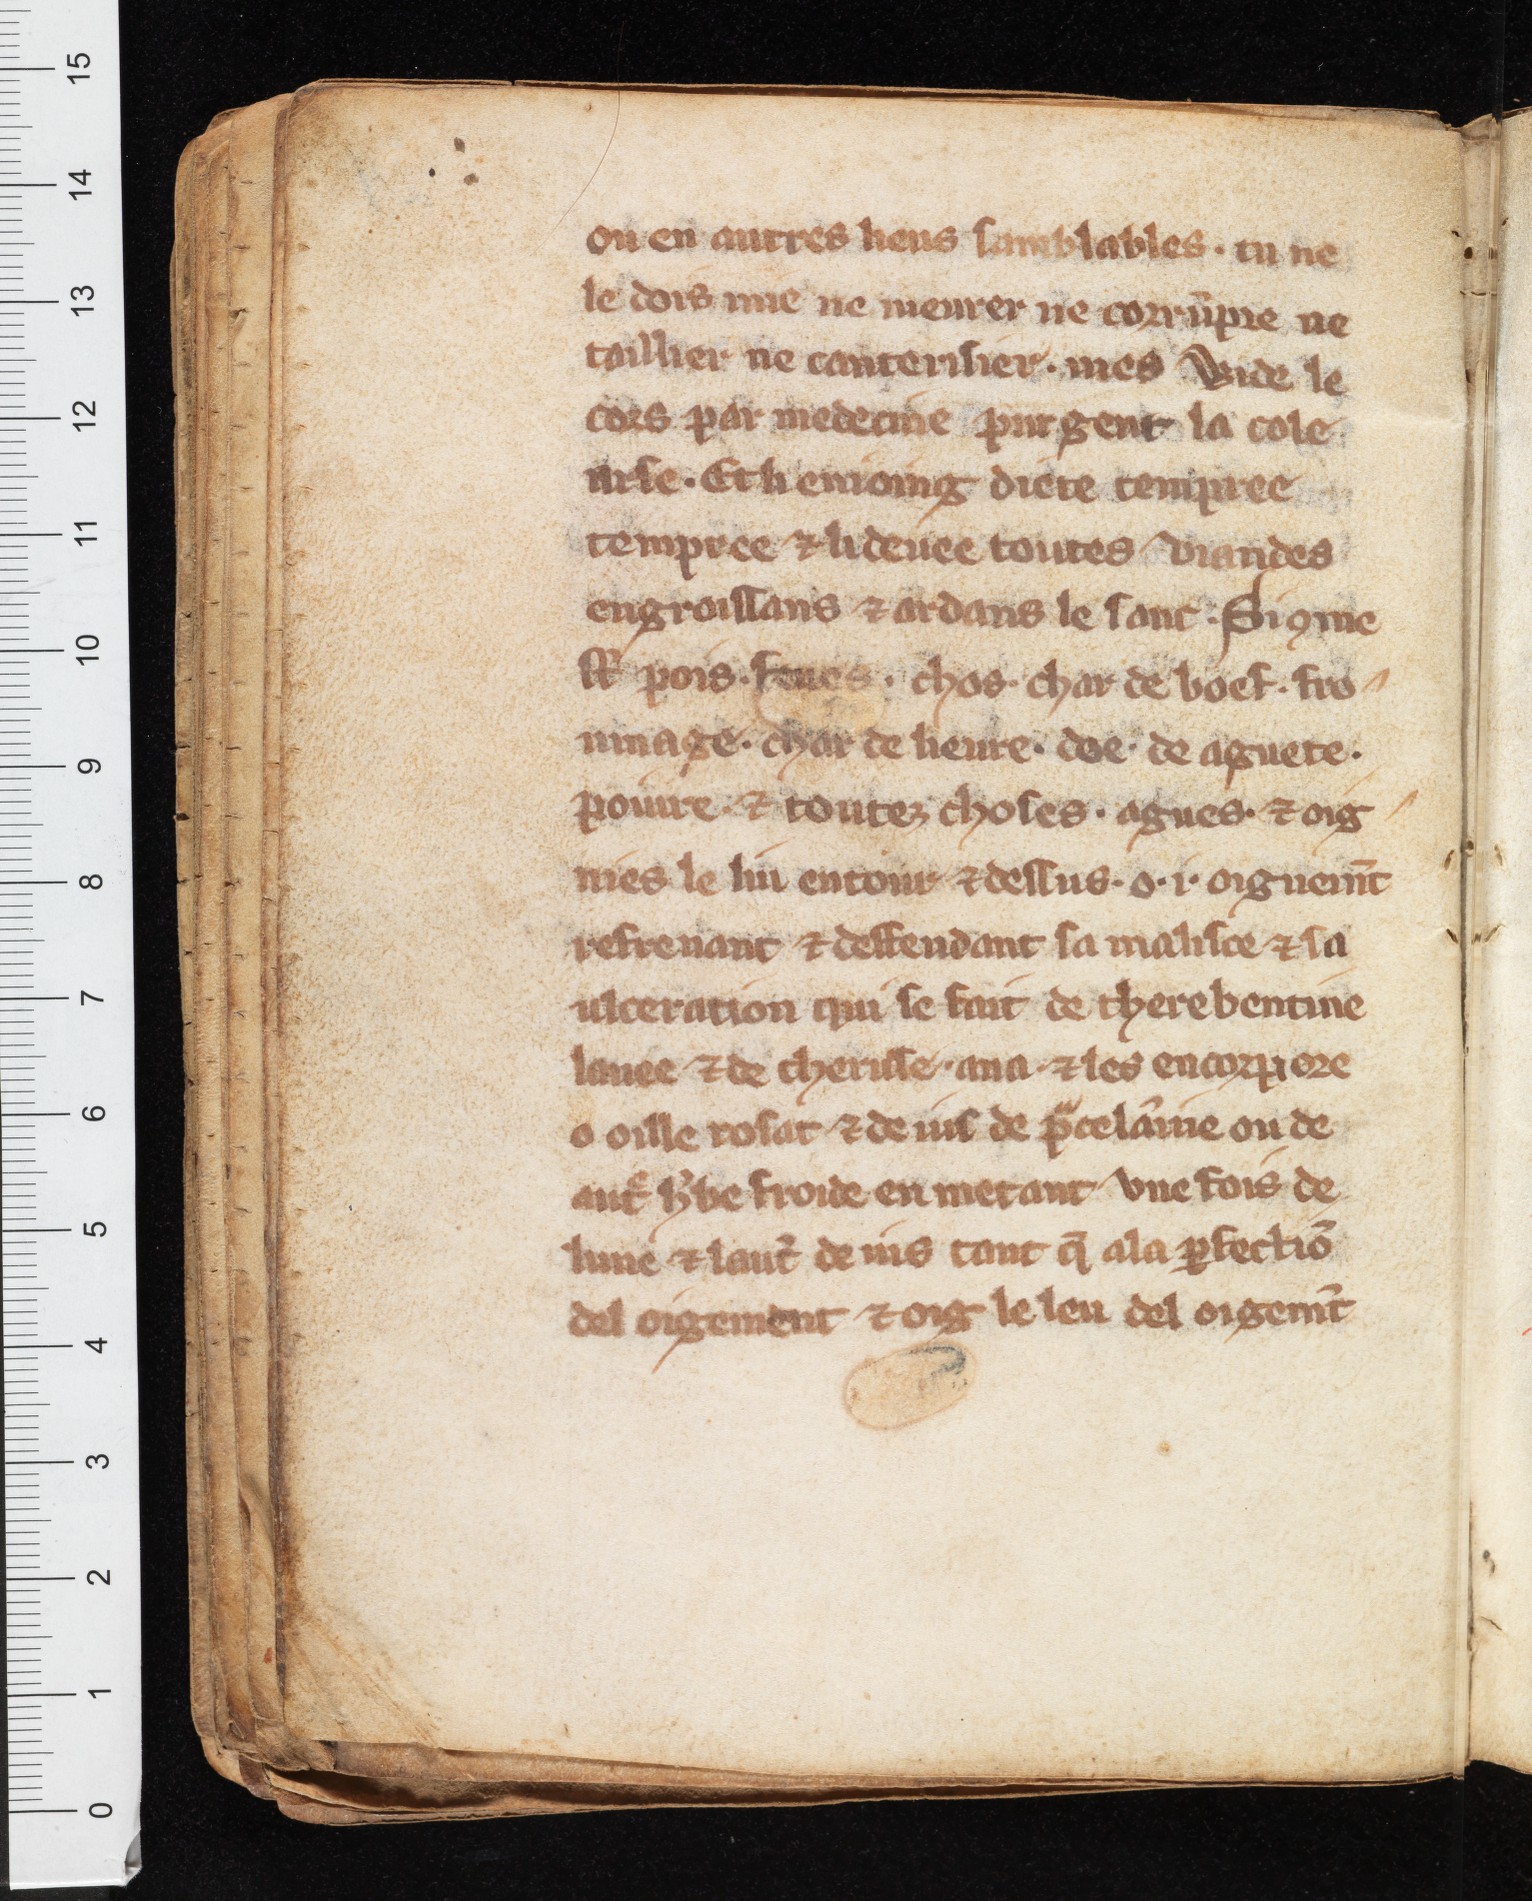 ou en autres lieus samblables · tu ne
le dois mie ne meurer ne corrũpre ne
taillier ne cauterisier · mes Wide le
cors par medecine purgent la cole
arse · Et li enioing diete tempree
tempree ⁊ li deuee toutes viandes
engroissans ⁊ ardans le sanc · Si ꝯme
sũt pois · feues · chos · char de boef · fro
mage · char de lieure · doe · de aguete ·
poiure · ⁊ toutez choses · agues · ⁊ oig
mes le liu entour ⁊ dessus · o · i · oiguem̃t
refrenant ⁊ deffendant sa malisce ⁊ sa
ulceration qui se fait de therebentine
lauee ⁊ de cherusse · ana · ⁊ les encorpore
o oille rosat ⁊ de ius de p̃celãine ou de
autˀ hˀbe froide en metant vne fois de
lune ⁊ lautˀ de ius tant q̃ a la ꝑfectiõ
del oigement ⁊ oig le leu del oigem̃t
15
14
13
12
11
10
9
8
7
6
5
4
3
2
1
0